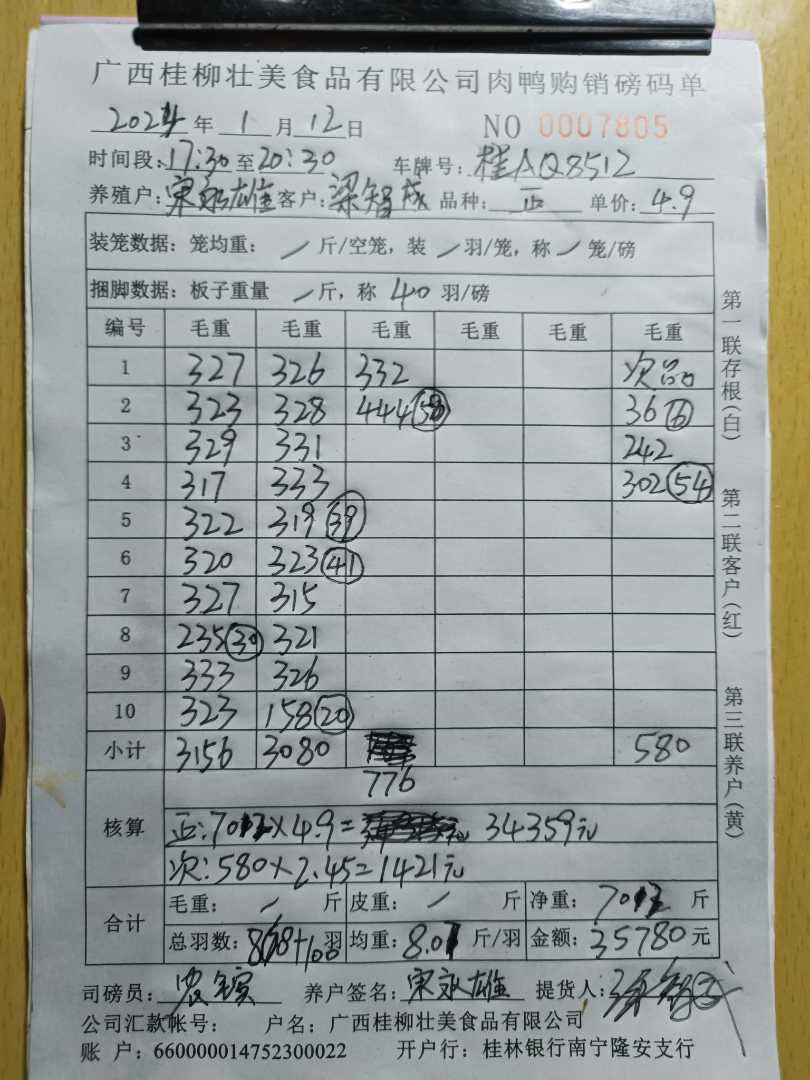 广西桂柳壮美食品有限公司肉鸭购销磅码单
2024年1月12日 NO 0007805
时间段:17:30至20:30 车牌号:桂AQ8512
养殖户:宋永雄 客户:梁智成 品种:正 单价:4.9
装笼数据:笼均重: / 斤/空笼,装 / 羽/笼,称 / 笼/磅
捆脚数据:板子重量 / 斤,称 40 羽/磅
编号 毛重 毛重 毛重 毛重 毛重 毛重
1 327 326 332 次品
2 323 328 444(58) 36(6)
3 329 331 242
4 317 333 302(54)
5 322 319(39)
6 320 323(41)
7 327 315
8 235(30) 321
9 333 326
10 323 158(20)
小计 3156 3080 580
776
核算 正:7012×4.9= 34359元
次:580×2.45=1421元
合计 毛重: / 斤 皮重: / 斤 净重: 7012 斤
总羽数:868+100羽 均重:8.07斤/羽 金额:35780元
司磅员: 养户签名:宋永雄 提货人:
公司汇款帐号: 户名:广西桂柳壮美食品有限公司
账 户:660000014752300022 开户行:桂林银行南宁隆安支行
第一联存根(白)
第二联客户(红)
第三联养户(黄)